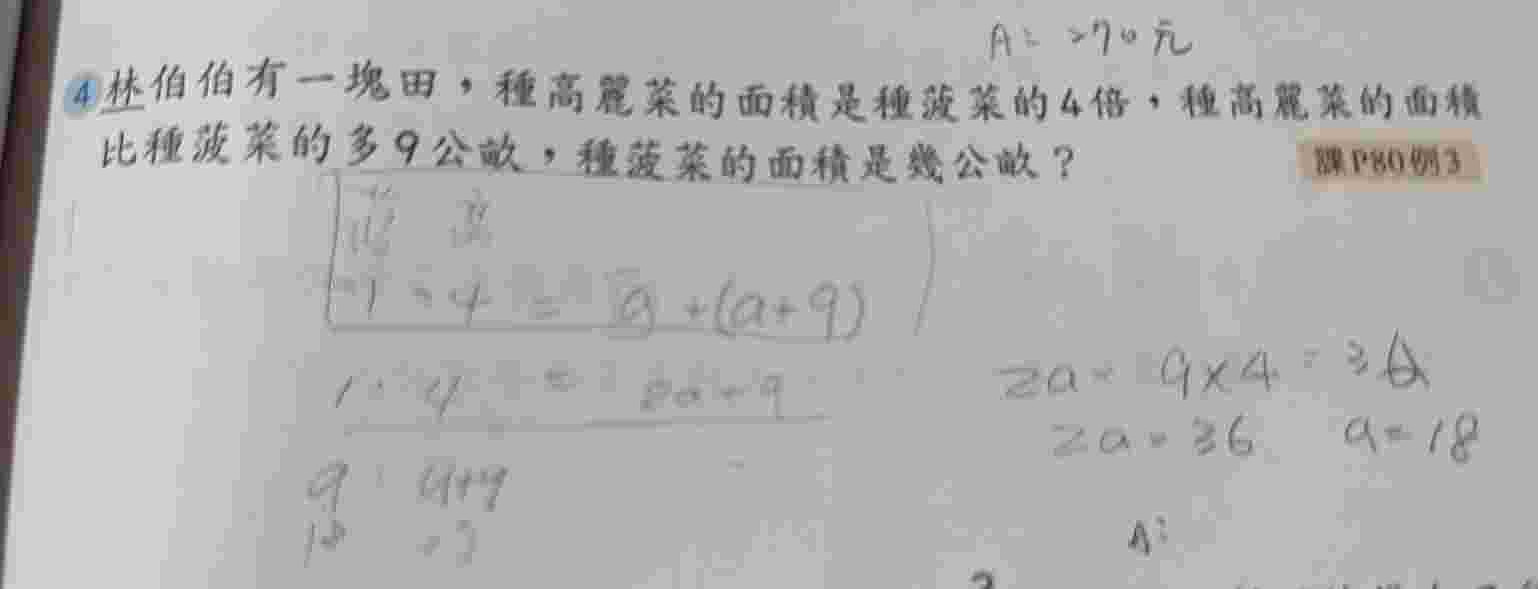 A: 270元
4 林伯伯有一塊田，種高麗菜的面積是種菠菜的4倍，種高麗菜的面積
比種菠菜的多9公畝，種菠菜的面積是幾公畝？
課P80例3
1:4 = a+(a+9)
1:4 = 2a+9
2a= 9×4=36
2a=36 a=18
a:a+9
18
A: